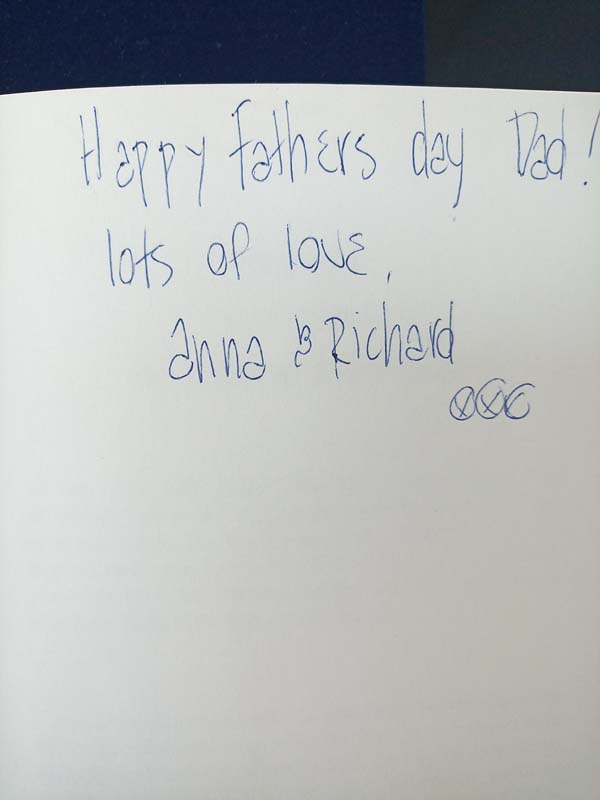 Happy Fathers day Dad!
lots of love,
anna & Richard